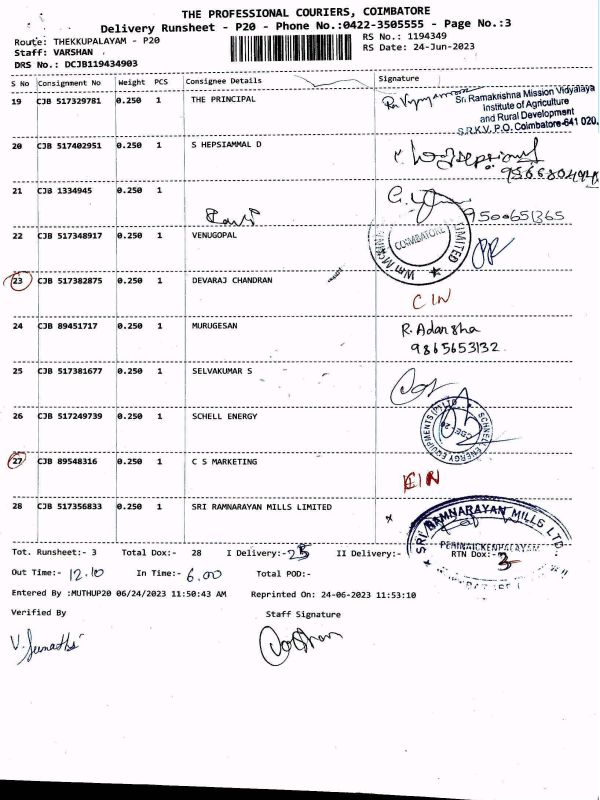 THE PROFESSIONAL COURIERS, COIMBATORE
Delivery Runsheet - P20 - Phone No.:0422-3505555 - Page No.:3
Route: THEKKUPALAYAM - P20
RS No.: 1194349
Staff: VARSHAN
RS Date: 24-Jun-2023
DRS No.: DCJB119434903
S No Consignment No Weight PCS Consignee Details Signature
19 CJB 517329781 0.250 1 THE PRINCIPAL
Sri Ramakrishna Mission Vidyalaya
Institute of Agriculture
and Rural Development
S.R.K.V. P.O. Coimbatore-641 020.
20 CJB 517402951 0.250 1 S HEPSIAMMAL D
21 CJB 1334945 0.250 1
9500651365
22 CJB 517348917 0.250 1 VENUGOPAL
COIMBATORE
LIMITED
23 CJB 517382875 0.250 1 DEVARAJ CHANDRAN
CIN
24 CJB 89451717 0.250 1 MURUGESAN
R. Adarsha
9865653132
25 CJB 517381677 0.250 1 SELVAKUMAR S
26 CJB 517249739 0.250 1 SCHELL ENERGY
SCHNELL ENERGY EQUIPMENTS (P) LTD
27 CJB 89548316 0.250 1 C S MARKETING
CIN
28 CJB 517356833 0.250 1 SRI RAMNARAYAN MILLS LIMITED
SRI RAMNARAYAN MILLS LTD.
PERIANAICKENPALAYAM
Tot. Runsheet:- 3 Total Dox:- 28 I Delivery:-25 II Delivery:- RTN Dox:- 3
Out Time:- 12.10 In Time:- 6.00 Total POD:-
Entered By :MUTHUP20 06/24/2023 11:50:43 AM Reprinted On: 24-06-2023 11:53:10
Verified By Staff Signature